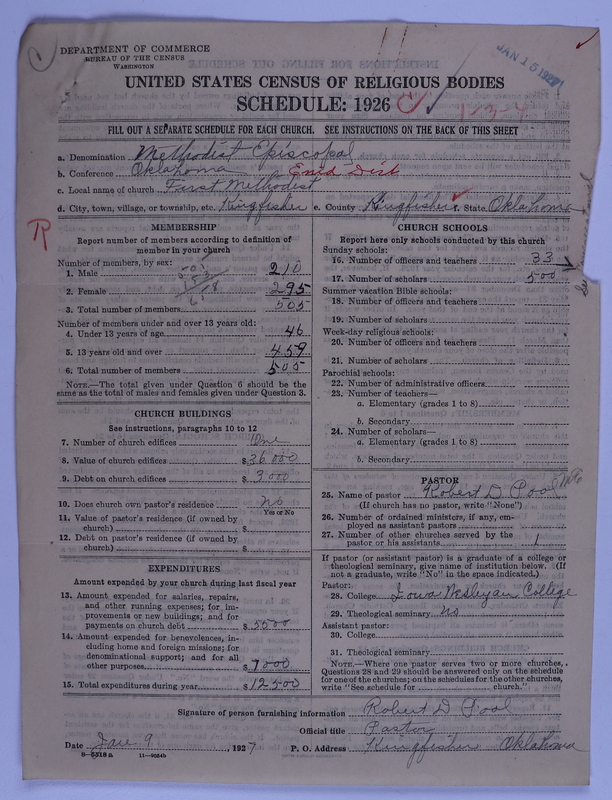 DEPARTMENT OF COMMERCE
BUREAU OF THE CENSUS
WASHINGTON
JAN 15 1927
UNITED STATES CENSUS OF RELIGIOUS BODIES
SCHEDULE: 1926
1-3-4
FILL OUT A SEPARATE SCHEDULE FOR EACH CHURCH. SEE INSTRUCTIONS ON THE BACK OF THIS SHEET
a. Denomination Methodist Episcopal
b. Conference Oklahoma Enid Dist
c. Local name of church First Methodist
d. City, town, village, or township, etc. Kingfisher e. County Kingfisher f. State Oklahoma
R
MEMBERSHIP
Report number of members according to definition of
member in your church
Number of members, by sex:
1. Male 210
2. Female 295
3. Total number of members 505
Number of members under and over 13 years old:
4. Under 13 years of age 46
5. 13 years old and over 459
6. Total number of members 505
NOTE.—The total given under Question 6 should be the
same as the total of males and females given under Question 3.
CHURCH BUILDINGS
See instructions, paragraphs 10 to 12
7. Number of church edifices One
8. Value of church edifices $36000
9. Debt on church edifices $3000
10. Does church own pastor's residence No
Yes or No
11. Value of pastor's residence (if owned by
church) $
12. Debt on pastor's residence (if owned by
church) $
EXPENDITURES
Amount expended by your church during last fiscal year
13. Amount expended for salaries, repairs,
and other running expenses; for im-
provements or new buildings; and for
payments on church debt $5500
14. Amount expended for benevolences, in-
cluding home and foreign missions; for
denominational support; and for all
other purposes $7000
15. Total expenditures during year $12500
CHURCH SCHOOLS
Report here only schools conducted by this church
Sunday schools:
16. Number of officers and teachers 33
17. Number of scholars 500
Summer vacation Bible schools:
18. Number of officers and teachers
19. Number of scholars
Week-day religious schools:
20. Number of officers and teachers
21. Number of scholars
Parochial schools:
22. Number of administrative officers
23. Number of teachers—
a. Elementary (grades 1 to 8)
b. Secondary
24. Number of scholars—
a. Elementary (grades 1 to 8)
b. Secondary
PASTOR
25. Name of pastor Robert D Pool
(If church has no pastor, write "None")
26. Number of ordained ministers, if any, em-
ployed as assistant pastors
27. Number of other churches served by the
pastor or his assistants 1
If pastor (or assistant pastor) is a graduate of a college or
theological seminary, give name of institution below. (If
not a graduate, write "No" in the space indicated.)
Pastor:
28. College Iowa Wesleyan College
29. Theological seminary No
Assistant pastor:
30. College
31. Theological seminary
NOTE.—Where one pastor serves two or more churches,
Questions 28 and 29 should be answered only on the schedule
for one of the churches; on the schedules for the other churches,
write "See schedule for church."
Signature of person furnishing information Robert D Pool
Official title Pastor
Date Jan 9, 1927 P. O. Address Kingfisher Oklahoma
8-5518a 11-9024b